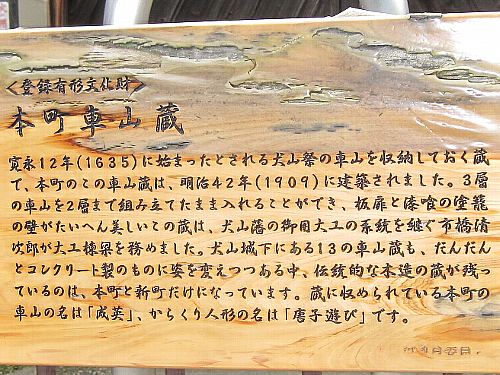 <登録有形文化財>
本町車山蔵
寛永12年(1635)に始まったとされる犬山祭の車山を収納しておく蔵
で、本町のこの車山蔵は、明治42年(1909)に建築されました。3層
の車山を2層まで組み立てたまま入れることができ、板扉と漆喰の塗籠
の壁がたいへん美しいこの蔵は、犬山藩の御用大工の系統を継ぐ市橋清
次郎が大工棟梁を務めました。犬山城下にある13の車山蔵も、だんだん
とコンクリート製のものに姿を変えつつある中、伝統的な木造の蔵が残っ
ているのは、本町と新町だけになっています。蔵に収められている本町の
車山の名は「咸英」、からくり人形の名は「唐子遊び」です。